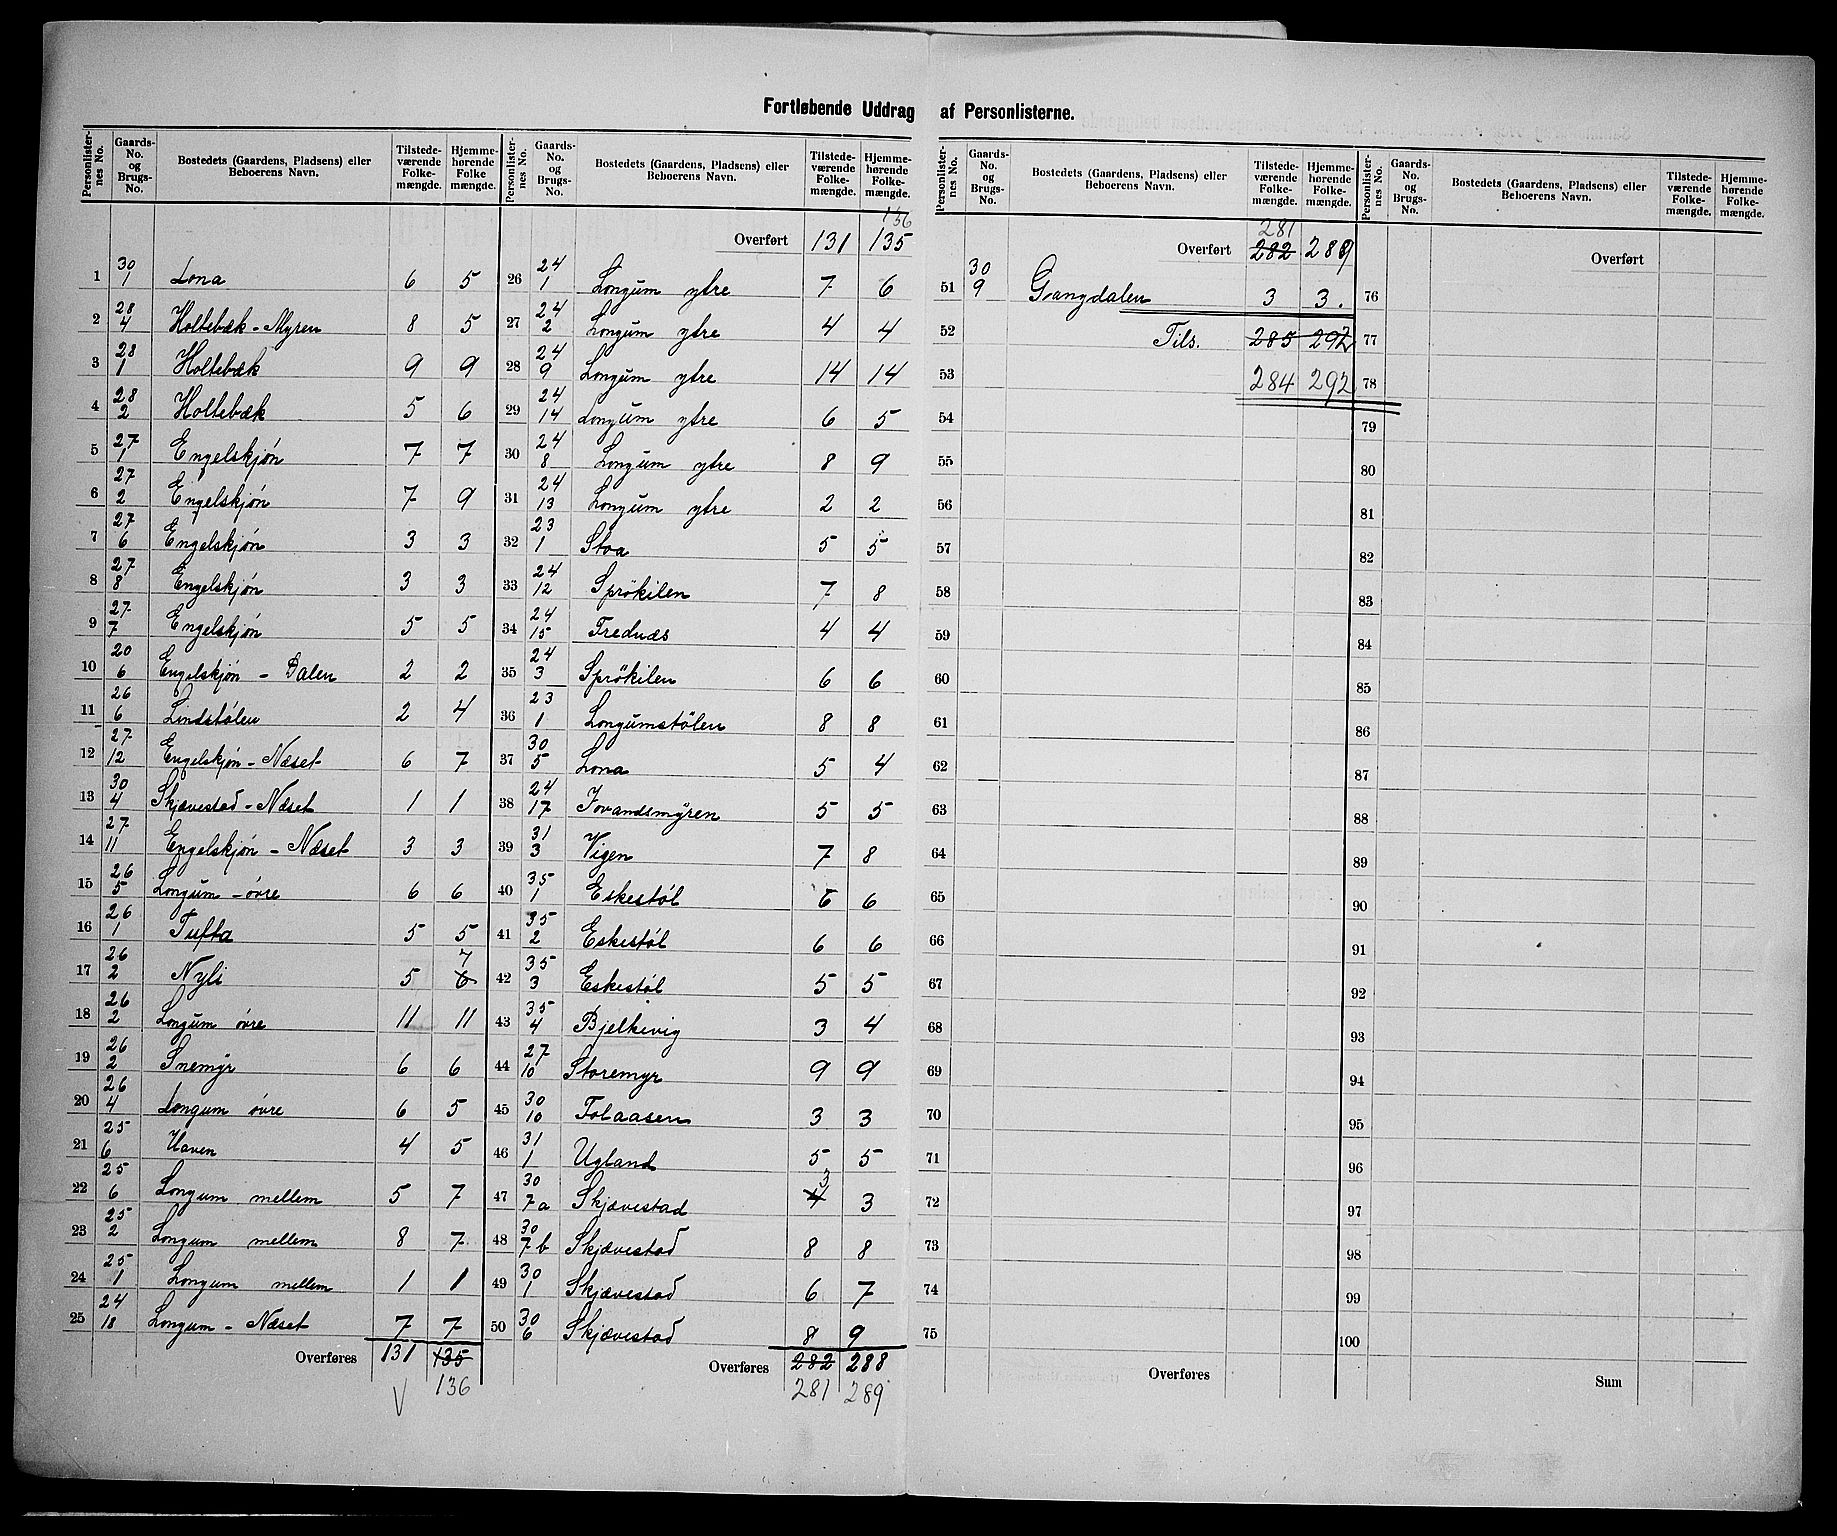 Fortløbende Uddrag af Personlisterne.
Personlister-nes No. Gaards-No. og Brugs-No. Bostedets (Gaardens, Pladsens) eller Beboerens Navn. Tilstede-værende Folke-mængde. Hjemme-hørende Folke mængde.
1 30/1 Lona 6 5
2 28/4 Holtebæk - Myren 8 5
3 28/1 Holtebæk 9 9
4 28/2 Holtebæk 5 6
5 27/1 Engelskjøn 7 7
6 27/2 Engelskjøn 7 9
7 27/6 Engelskjøn 3 3
8 27/8 Engelskjøn 3 3
9 27/7 Engelskjøn 5 5
10 20/6 Engelskjøn - Dalen 2 2
11 26/6 Lindstølen 2 4
12 27/12 Engelskjøn - Næset 6 7
13 30/4 Skjævestad - Næset 1 1
14 27/11 Engelskjøn - Næset 3 3
15 26/5 Longum - øvre 6 6
16 26/1 Tufta 5 5
17 26/2 Nyli 5 6 7
18 26/2 Longum øvre 11 11
19 26/2 Snemyr 6 6
20 26/4 Longum øvre 6 5
21 25/6 Haven 4 5
22 25/6 Longum mellem 5 7
23 25/2 Longum mellem 8 7
24 25/1 Longum mellem 1 1
25 24/18 Longum - Næset 7 7
Overføres 131 135
136
Personlister-nes No. Gaards-No. og Brugs-No. Bostedets (Gaardens, Pladsens) eller Beboerens Navn. Tilstede-værende Folke-mængde. Hjemme-hørende Folke-mængde.
136
Overført 131 135
26 24/1 Longum ytre 7 6
27 24/2 Longum ytre 4 4
28 24/9 Longum ytre 14 14
29 24/14 Longum ytre 6 5
30 24/8 Longum ytre 8 9
31 24/13 Longum ytre 2 2
32 23/1 Stoa 5 5
33 24/12 Sprökilen 7 8
34 24/15 Frednæs 4 4
35 24/3 Sprökilen 6 6
36 23/1 Longumstölen 8 8
37 30/5 Lona 5 4
38 24/17 Jovandsmyren 5 5
39 31/3 Vigen 7 8
40 35/1 Eskestøl 6 6
41 35/2 Eskestøl 6 6
42 35/3 Eskestøl 5 5
43 35/4 Bjelkivig 3 4
44 27/10 Storemyr 9 9
45 30/10 Folaasen 3 3
46 31/1 Ugland 5 5
47 30/7a Skjævestad 4 3 3
48 30/7b Skjævestad 8 8
49 30/1 Skjævestad 6 7
50 30/6 Skjævestad 8 9
Overføres 282 288
281 289
Personlister-nes No. Gaards-No. og Brugs-No. Bostedets (Gaardens, Pladsens) eller Beboerens Navn. Tilstede-værende Folke-mængde. Hjemme-hørende Folke-mængde.
281
Overført 282 289
51 30/9 Gangdalen 3 3.
52 Tils. 285 292
53 284 292
54
55
56
57
58
59
60
61
62
63
64
65
66
67
68
69
70
71
72
73
74
75
Overføres
Personlister-nes No. Gaards-No. og Brugs-No. Bostedets (Gaardens, Pladsens) eller Beboerens Navn. Tilstede-værende Folke-mængde. Hjemme-hørende Folke-mængde.
Overført
76
77
78
79
80
81
82
83
84
85
86
87
88
89
90
91
92
93
94
95
96
97
98
99
100
Sum